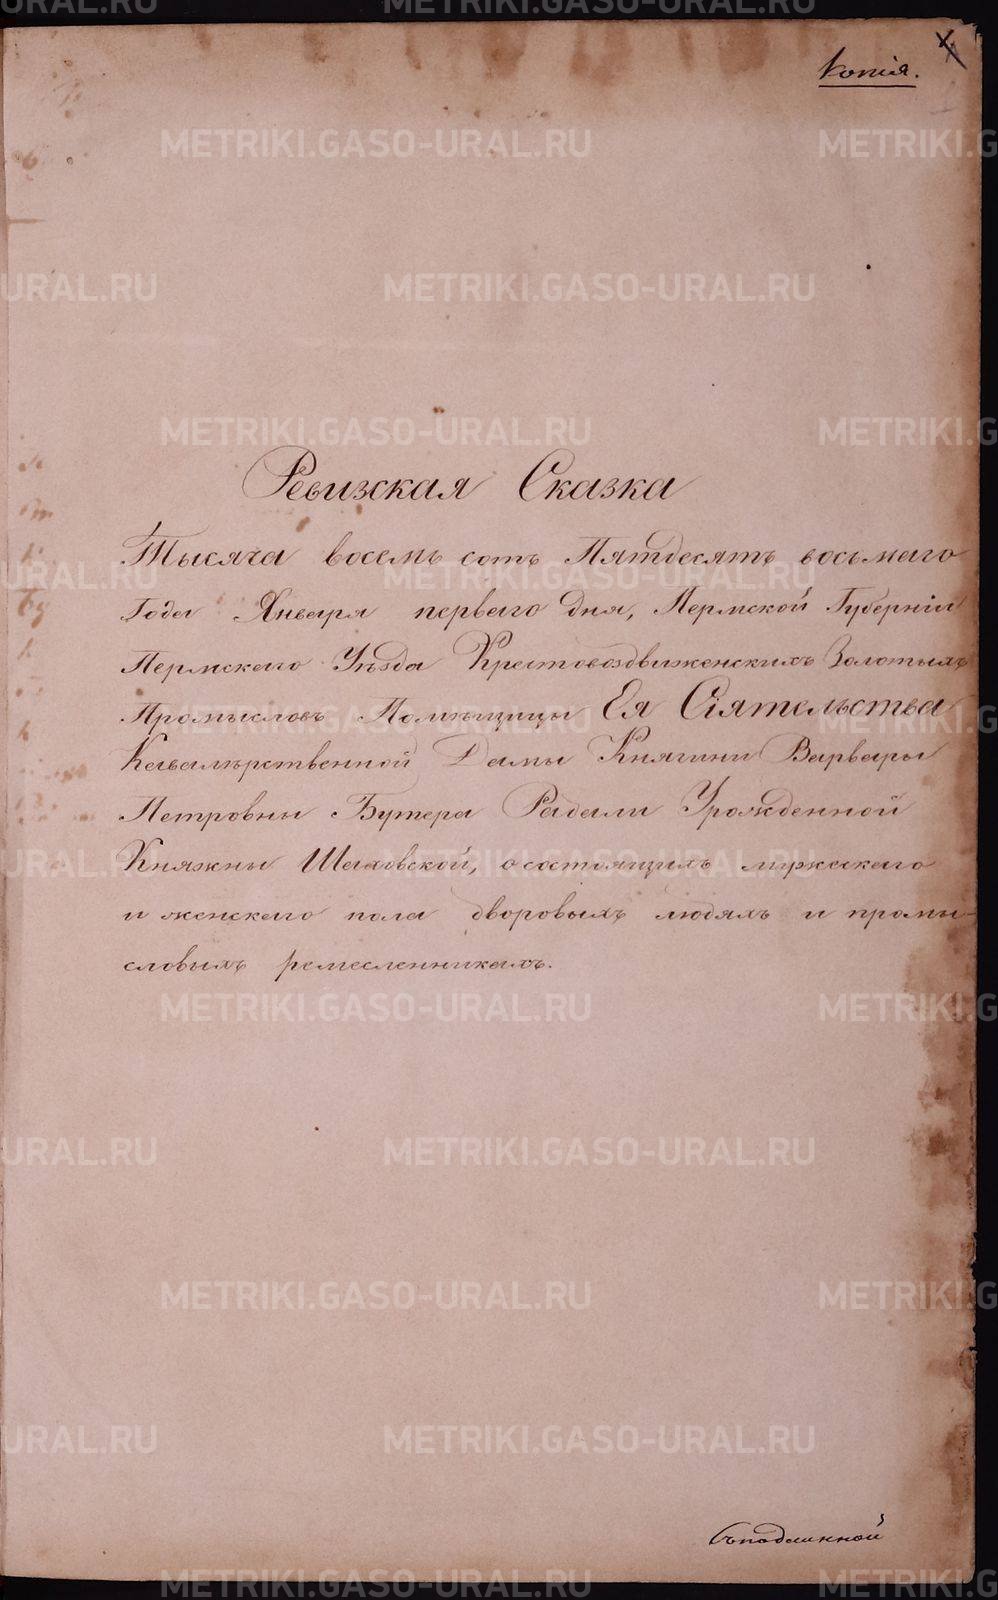 Копія.
Ревизская Сказка
Тысяча восемь сотъ Пятдесятъ восьмаго
Года Января перваго дня, Пермской Губерніи
Пермскаго Уѣзда Крестовоздвиженскихъ Золотыхъ
Промысловъ Помѣщицы Ея Сіятельства
Кавалерственной Дамы Княгини Варвары
Петровны Бутера Радали Урожденной
Княжны Шаховской, о состоящихъ мужескаго
и женскаго пола дворовыхъ людяхъ и промы-
словыхъ ремесленникахъ.
Съ подлинной
METRIKI.GASO-URAL.RU